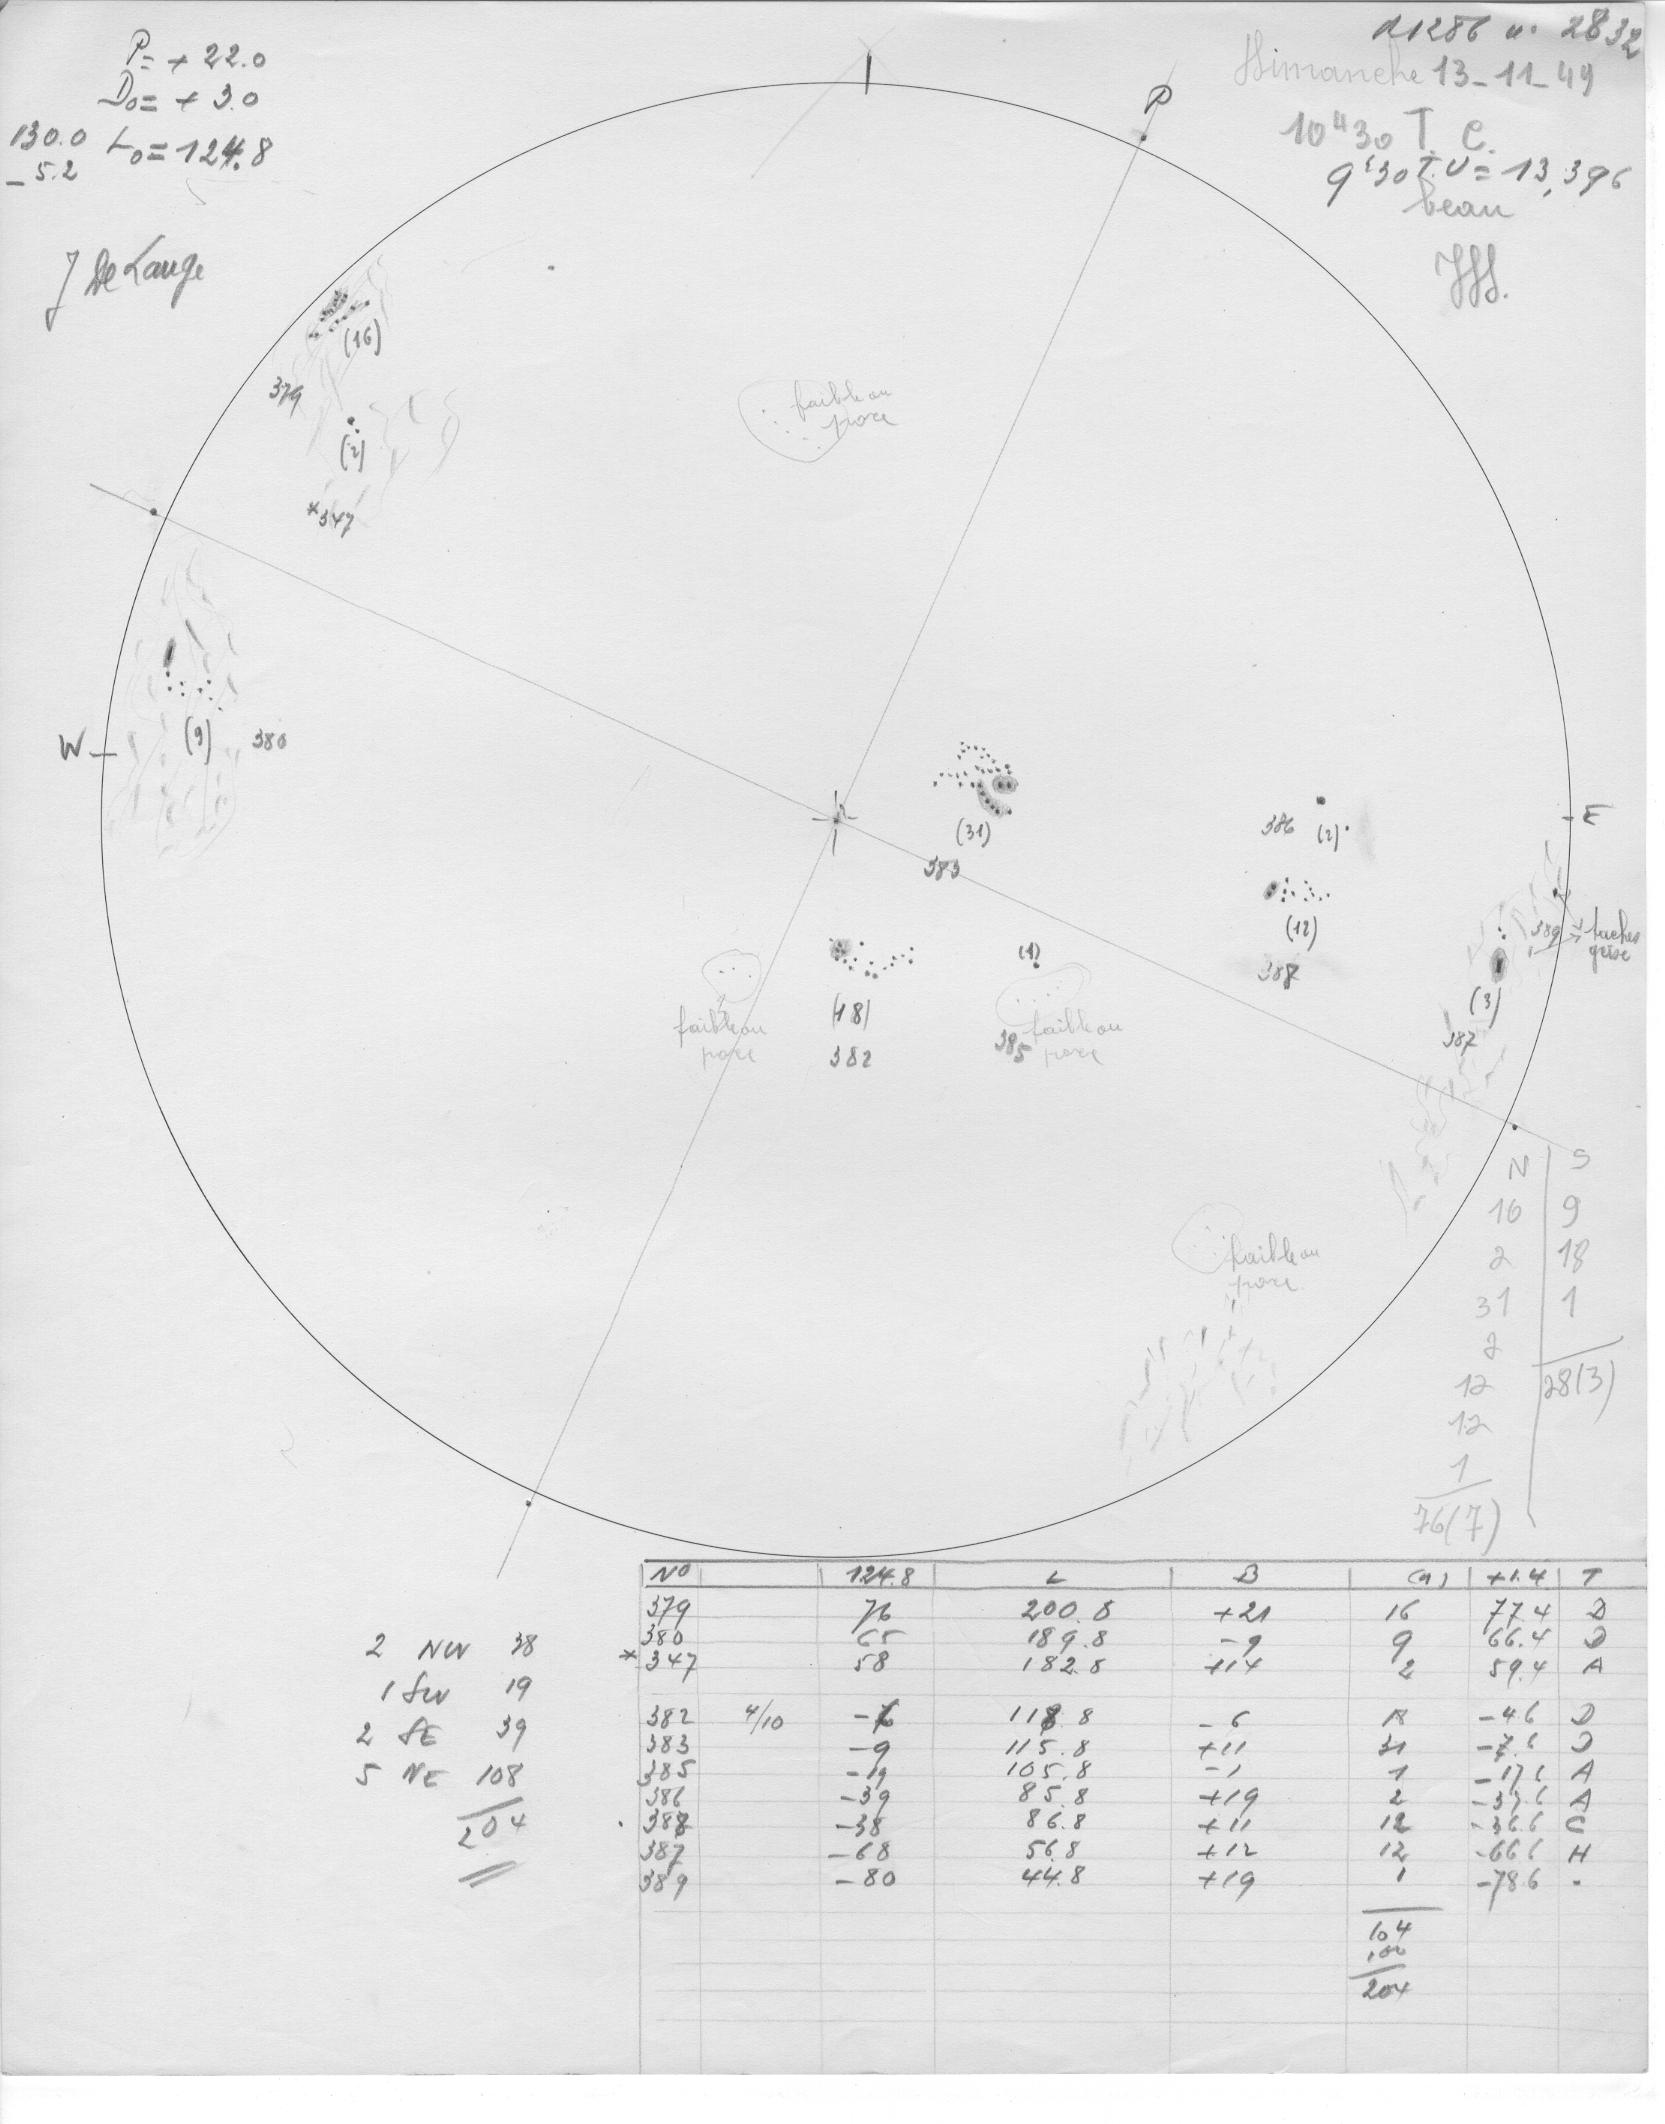 P= + 22.0
D₀= + 3.0
130.0 L₀=124.8
- 5.2
J De Lange
n1286 n. 2832
Dimanche 13-11-49
10 H 30 T. C.
9 h 30 T.U = 13,396
beau
P
(16)
379
(2)
*347
faible ou
pore
W
(9) 380
(31)
383
386 (2)
E
(12)
388
389 taches
grise
(3)
387
(1)
faible ou
pore
(18)
382
385 faible ou
pore
faible ou
pore
N S
16 9
2 18
31 1
2
12 28(3)
12
1
76(7)
N° 124.8 L B (n) +1.4 T
379 76 200.8 +21 16 77.4 D
380 65 189.8 -9 9 66.4 D
*347 58 182.8 +14 2 59.4 A
382 4/10 -6 118.8 -6 18 -4.6 D
383 -9 115.8 +11 31 -7.6 D
385 -19 105.8 -1 1 -17.6 A
386 -39 85.8 +19 2 -37.6 A
388 -38 86.8 +11 12 -36.6 C
387 -68 56.8 +12 12 -66.6 H
389 -80 44.8 +19 1 -78.6 -
104
100
204
2 NW 38
1 SW 19
2 SE 39
5 NE 108
204